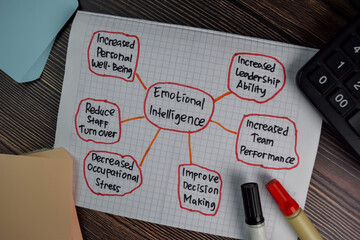 Increased
Personal
Well-Being
Increased
Leadership
Ability
Emotional
Intelligence
Reduce
Staff
Turnover
Increased
Team
Performance
Decreased
Occupational
Stress
Improve
Decision
Making
0
00